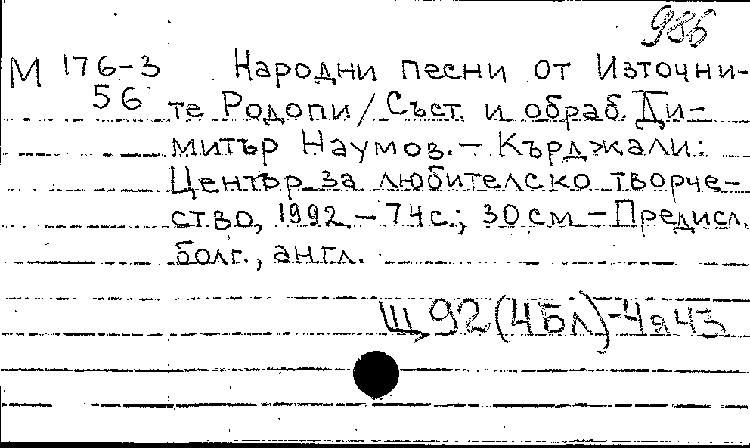 986
М 176-3 Народни песни от Източни-
56 те Родопи / Съст. и обраб. Ди-
митър Наумов. - Кърджали:
Център за любителско творче-
ство, 1992. - 74 с.; 30 см - Предисл.
болг., англ.
Щ92(4Бл)-4я43